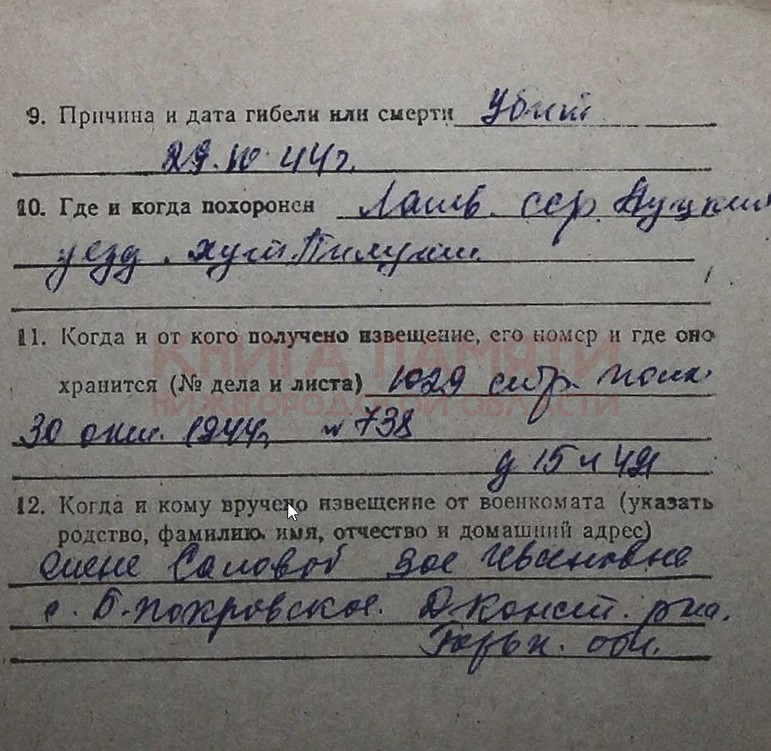 9. Причина и дата гибели или смерти Убит
29.10.44г.
10. Где и когда похоронен Латв. сср.
уезд. хут.
11. Когда и от кого получено извещение, его номер и где оно
КНИГА ПАМЯТИ
хранится (№ дела и листа) 1029 стр. полк
НИЖЕГОРОДСКОЙ ОБЛАСТИ
30 окт. 1944г. № 738
д 15 л 421
12. Когда и кому вручено извещение от военкомата (указать
родство, фамилию, имя, отчество и домашний адрес)
жене Саловой Зое Ивановне
с. Б-покровское. Д.Конст. р-на.
Горьк. обл.